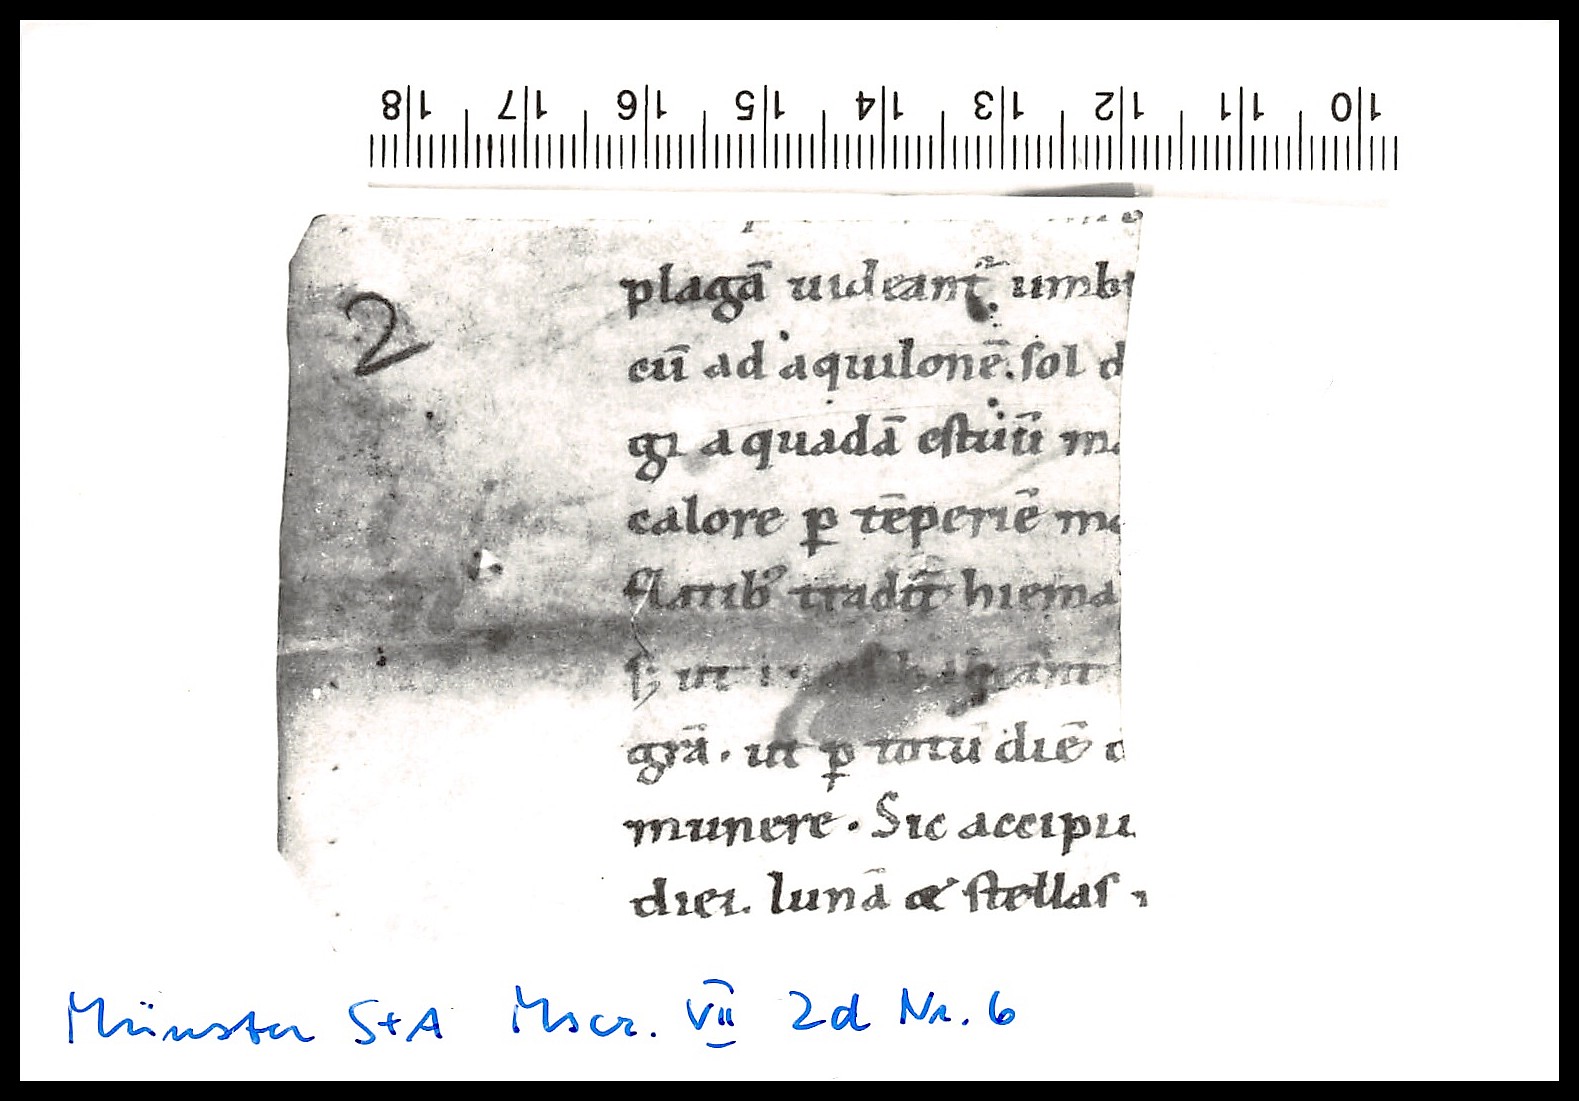 18 17 16 15 14 13 12 11 10
2
plagā uideant᷑ umb
cū ad aquilonē. sol d
gr aquadā estiuū m
calore ꝑ tēperiē m
flatib; tradit᷑ hiema
s; ut
grā. ut ꝑ totū diē c
munere. Sic accipu
diei. lunā & stellas
Münster StA Mscr. VII 2d Nr. 6